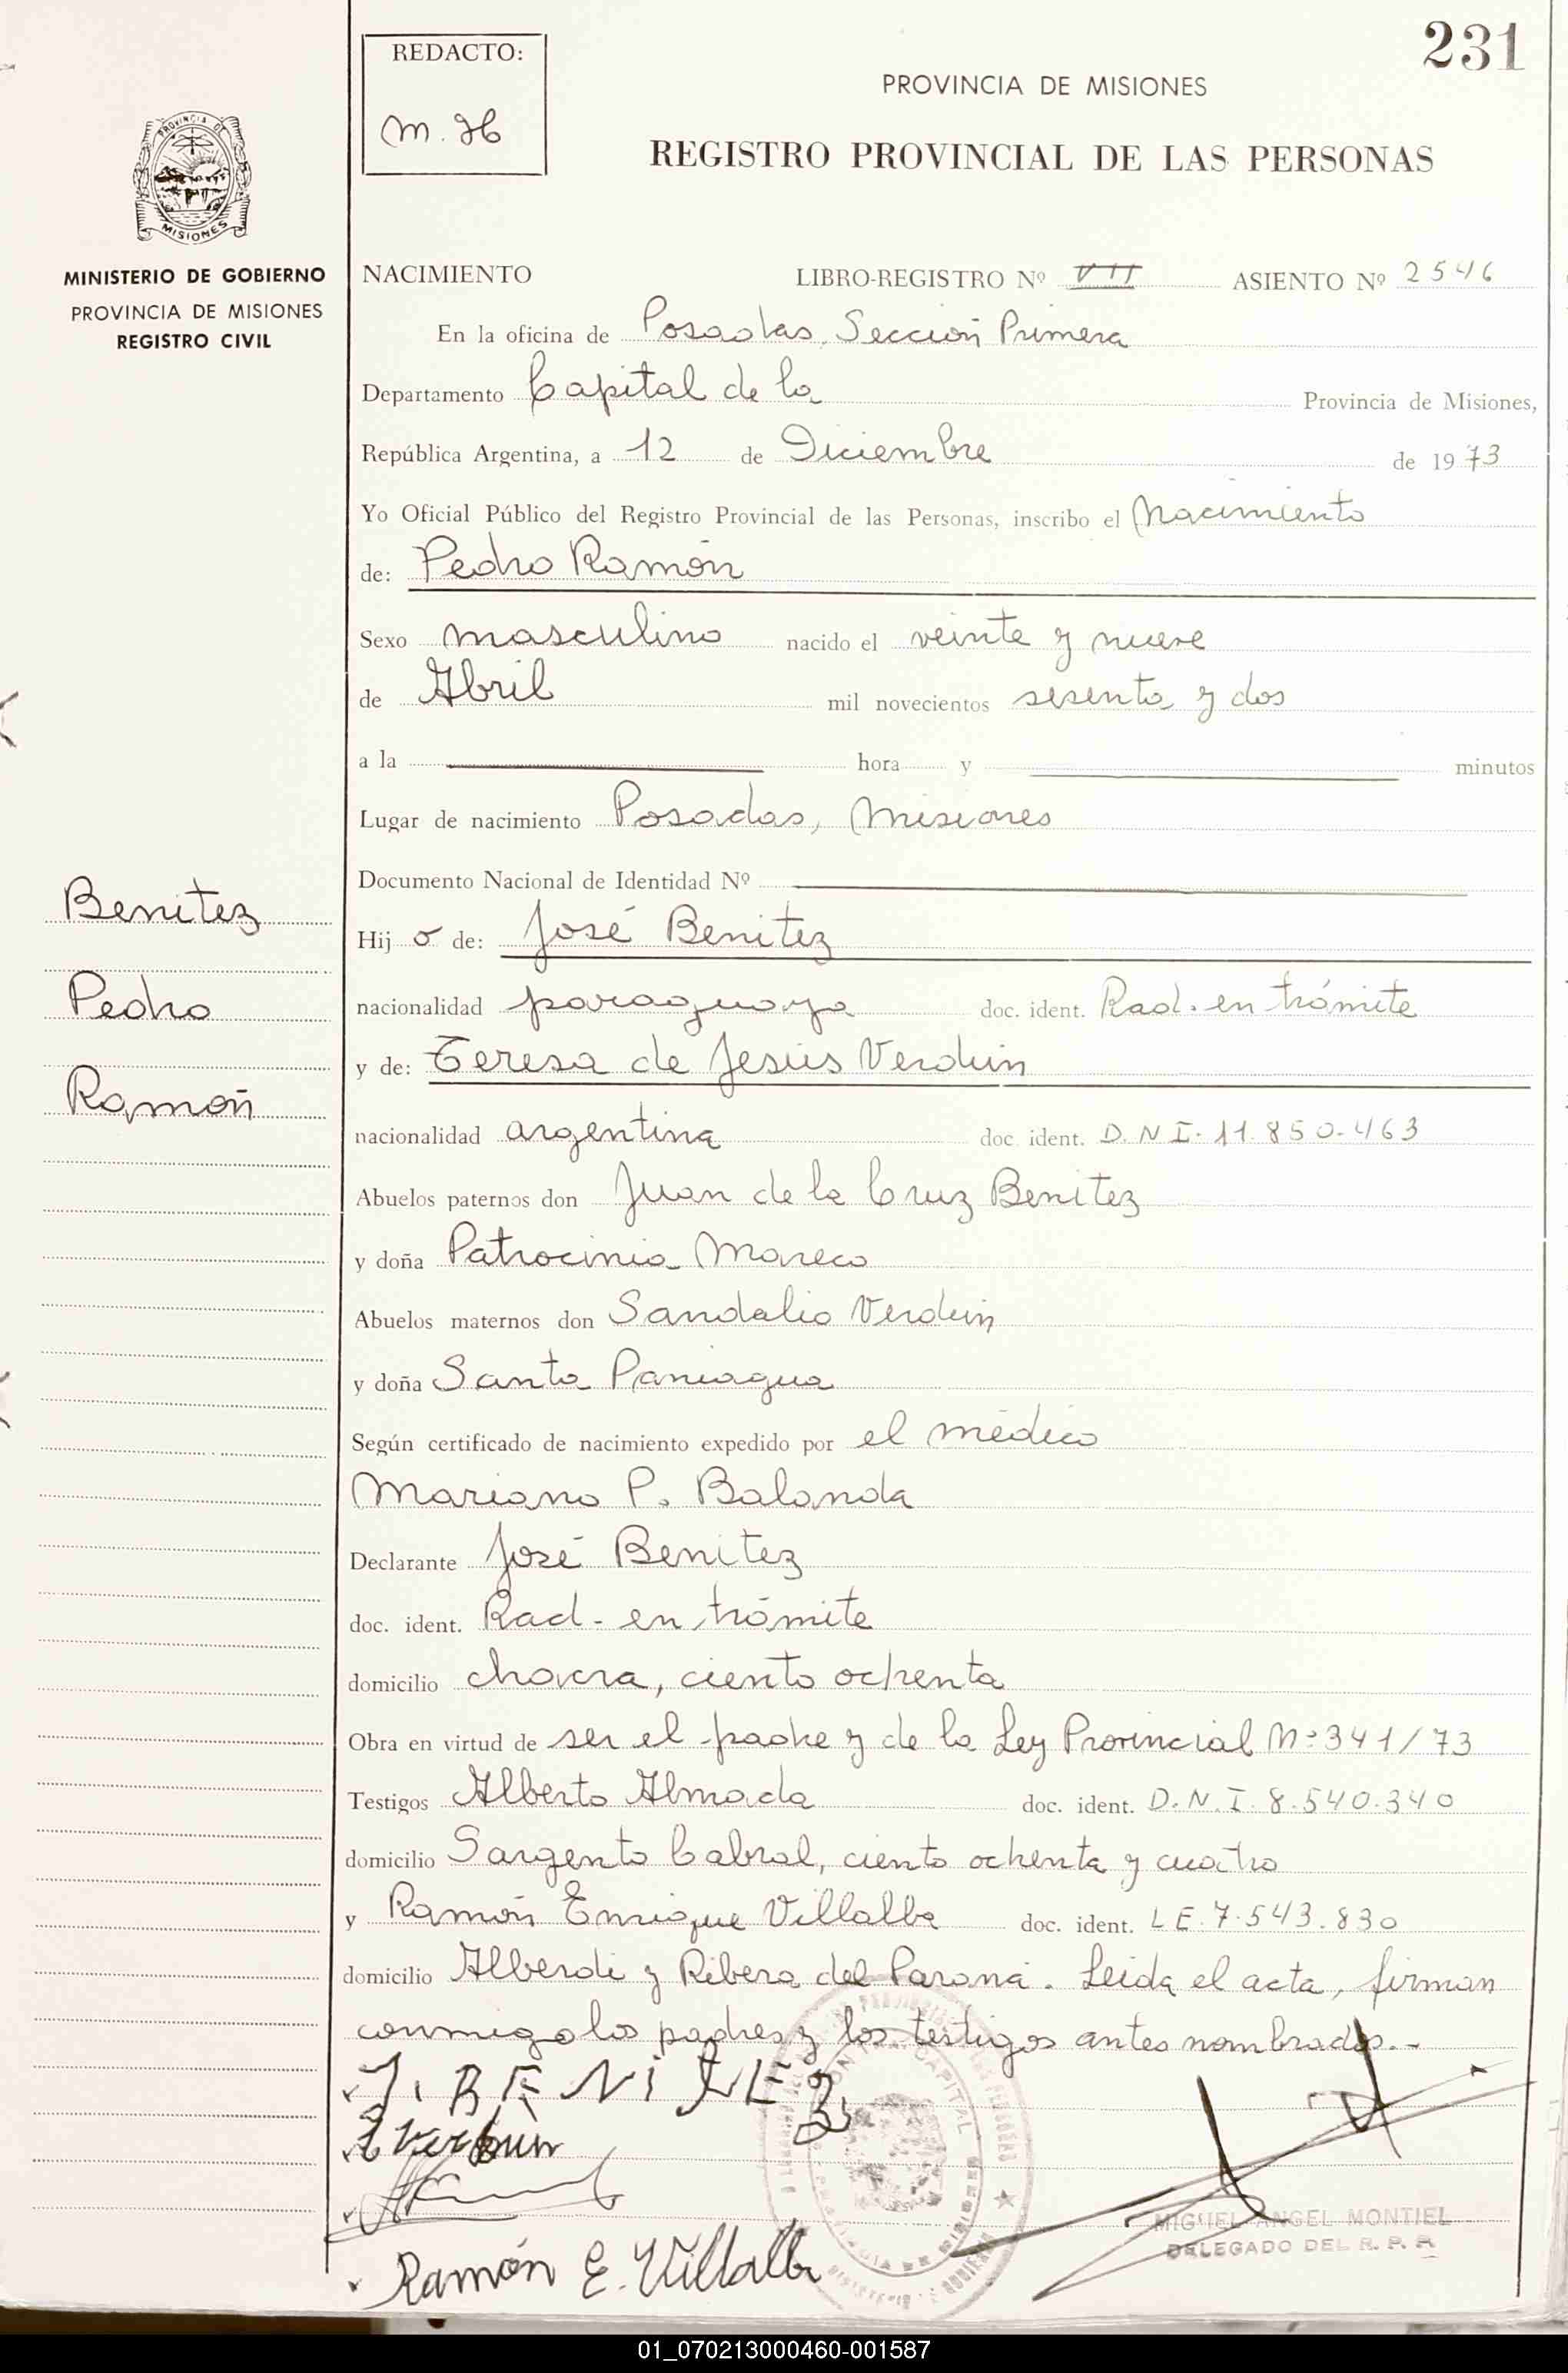 231
REDACTO:
M. H
PROVINCIA DE MISIONES
REGISTRO PROVINCIAL DE LAS PERSONAS
PROVINCIA DE
MISIONES
MINISTERIO DE GOBIERNO
PROVINCIA DE MISIONES
REGISTRO CIVIL
NACIMIENTO LIBRO-REGISTRO Nº VII ASIENTO Nº 2546
En la oficina de Posadas, Sección Primera
Departamento Capital de la Provincia de Misiones,
República Argentina, a 12 de Diciembre de 1973
Yo Oficial Público del Registro Provincial de las Personas, inscribo el Nacimiento
de: Pedro Ramón
Sexo masculino nacido el veinte y nueve
de Abril mil novecientos sesenta y dos
a la hora y minutos
Lugar de nacimiento Posadas, Misiones
Documento Nacional de Identidad Nº
Benitez
Hij o de: José Benitez
Pedro
nacionalidad paraguaya doc. ident. Rad. en trámite
y de: Teresa de Jesús Verdún
Ramón
nacionalidad argentina doc. ident. D.N.I. 11.850.463
Abuelos paternos don Juan de la Cruz Benitez
y doña Patrocinia Mareco
Abuelos maternos don Sandalio Verdún
y doña Santa Paniagua
Según certificado de nacimiento expedido por el médico
Mariano P. Balanda
Declarante José Benitez
doc. ident. Rad. en trámite
domicilio chacra, ciento ochenta
Obra en virtud de ser el padre y de la Ley Provincial Nº 341/73
Testigos Alberto Almada doc. ident. D.N.I. 8.540.340
domicilio Sargento Cabral, ciento ochenta y cuatro
y Ramón Enrique Villalba doc. ident. L E. 7.543.830
domicilio Alberdi y Ribera del Paraná. Leida el acta, firman
conmigo los padres y los testigos antes nombrados.-
J. BENiTEZ
T Verdun
MIGUEL ANGEL MONTIEL
DELEGADO DEL R. P. P.
Ramón E. Villalba
01_070213000460-001587